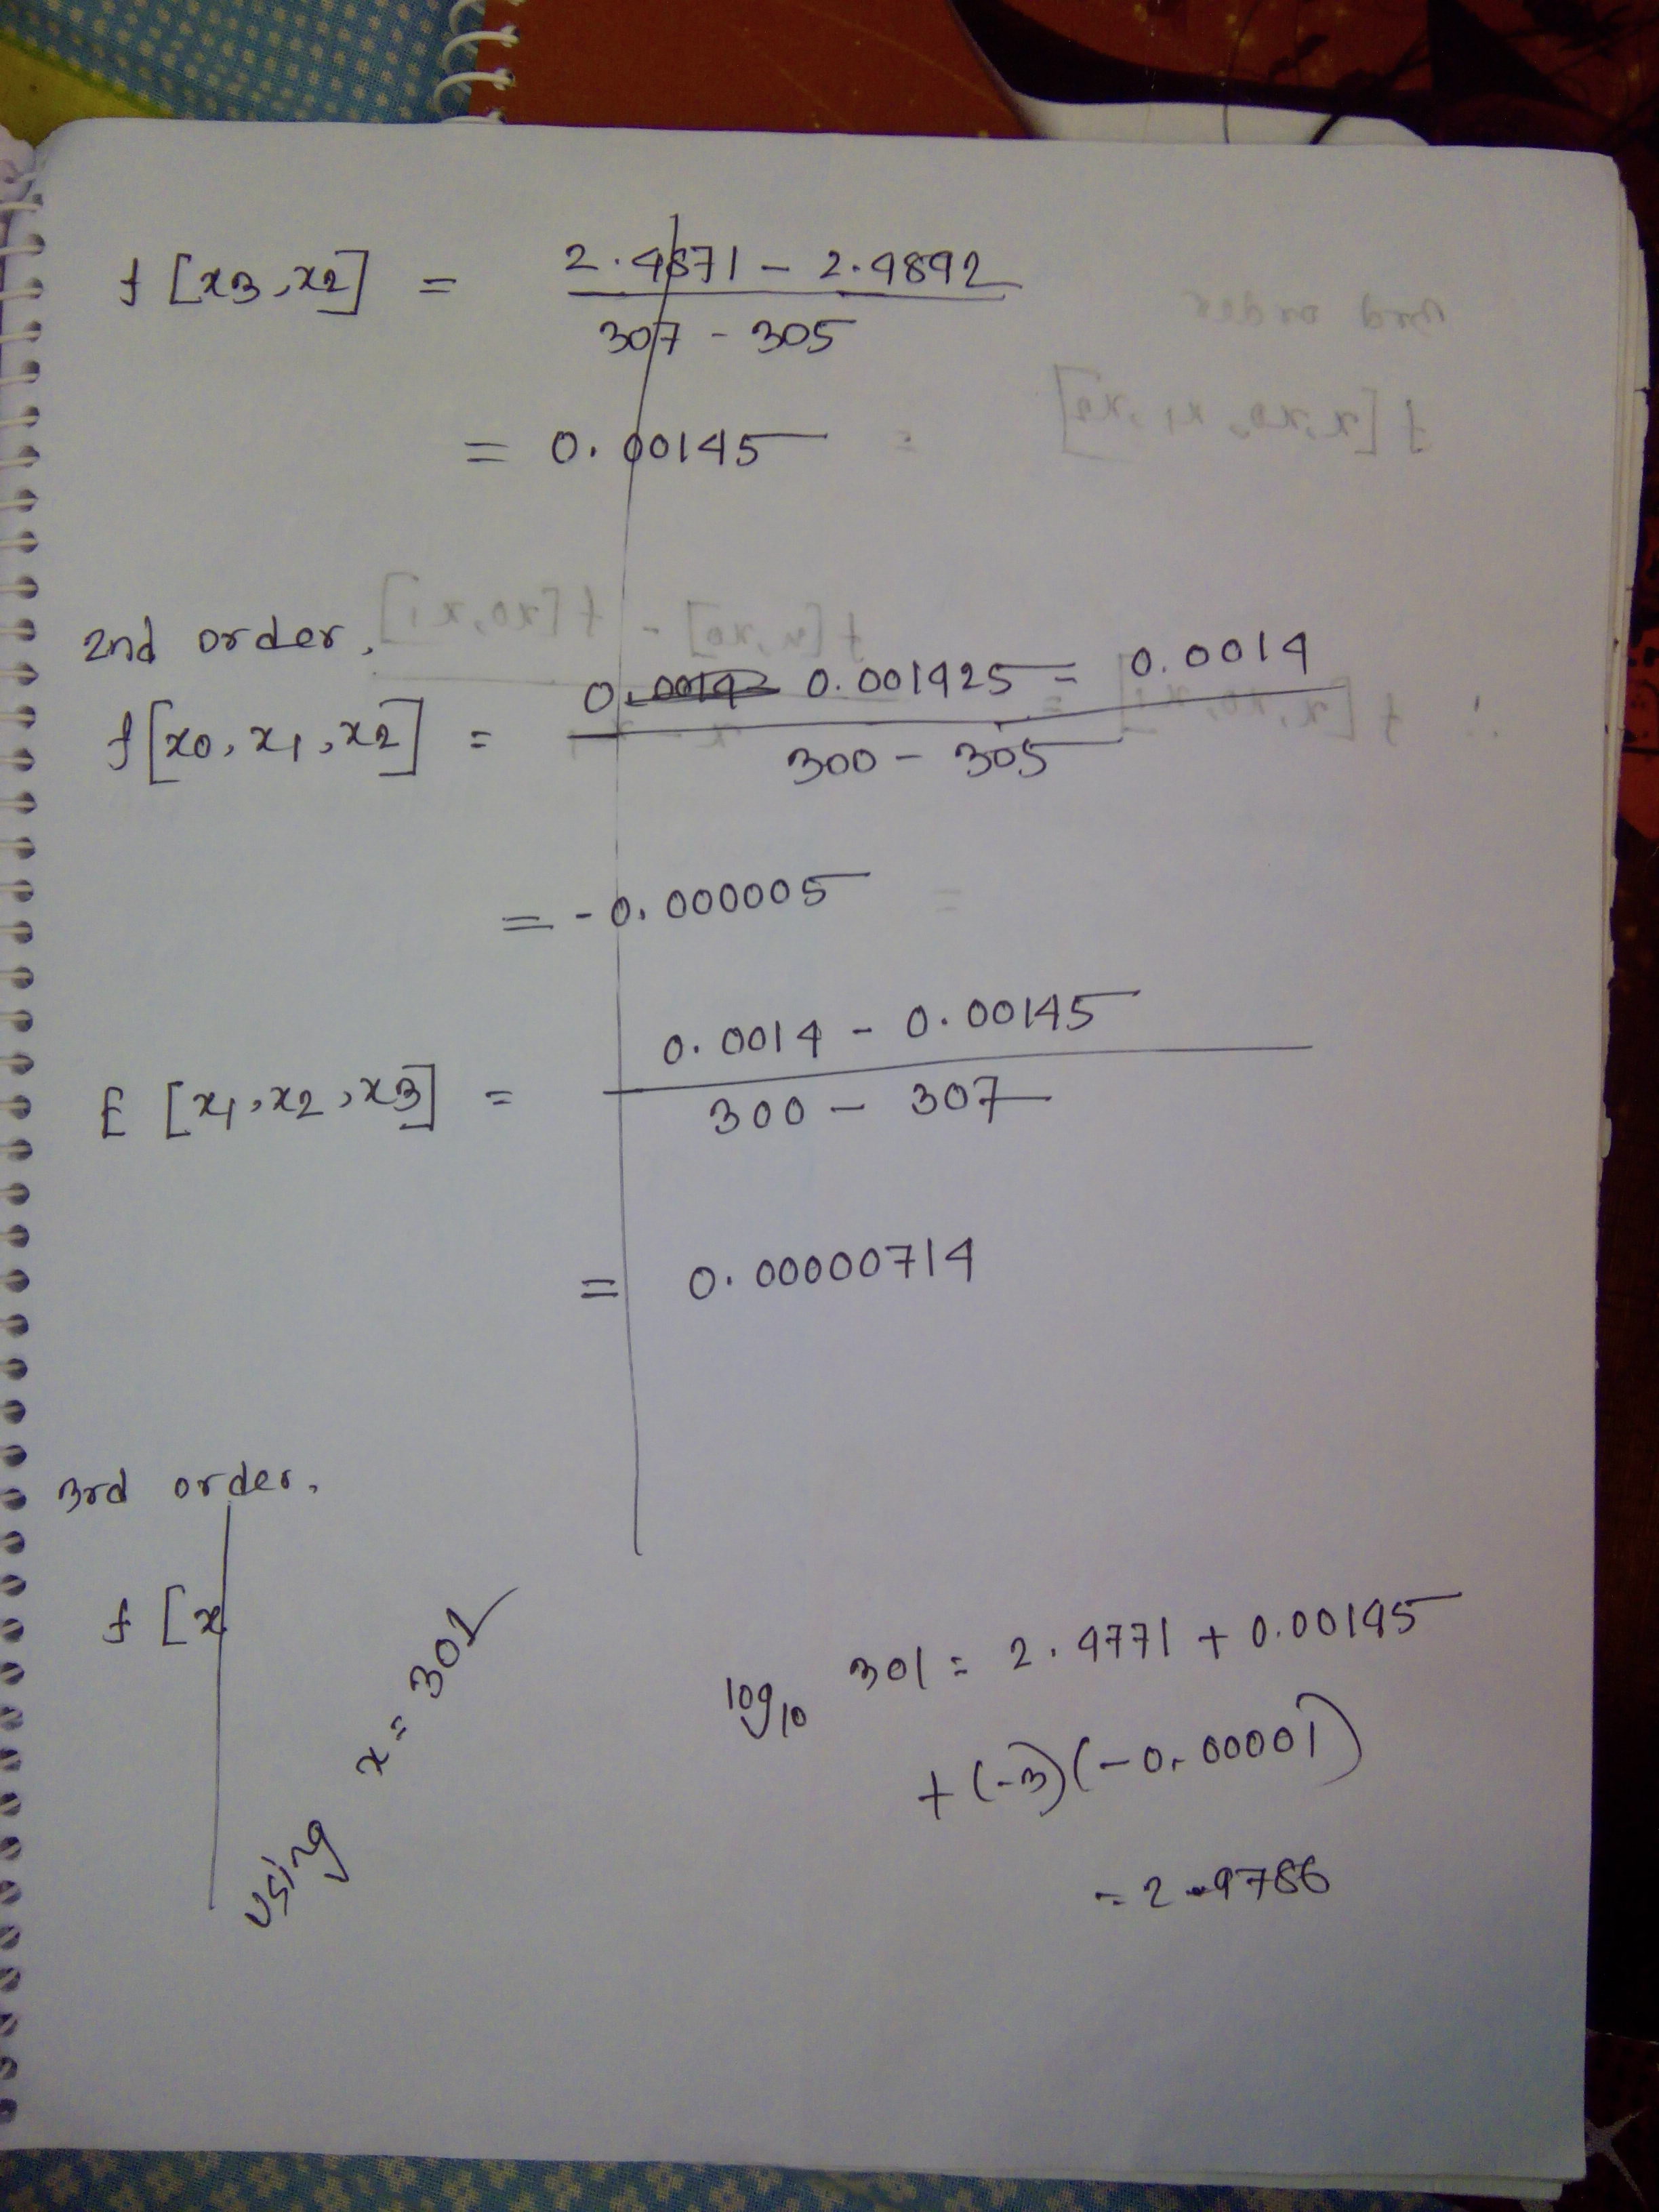 f [x3, x2] = 2.4871 - 2.4842
307 - 305
= 0.00145
2nd order.
f[x0, x1, x2] = 0.001425 - 0.0014
300 - 305
= -0.000005
f [x1, x2, x3] = 0.0014 - 0.00145
300 - 307
= 0.00000714
3rd order.
f [x
using x = 301
log10 301 = 2.4771 + 0.00145
+ (-3)(-0.00001)
= 2.4786